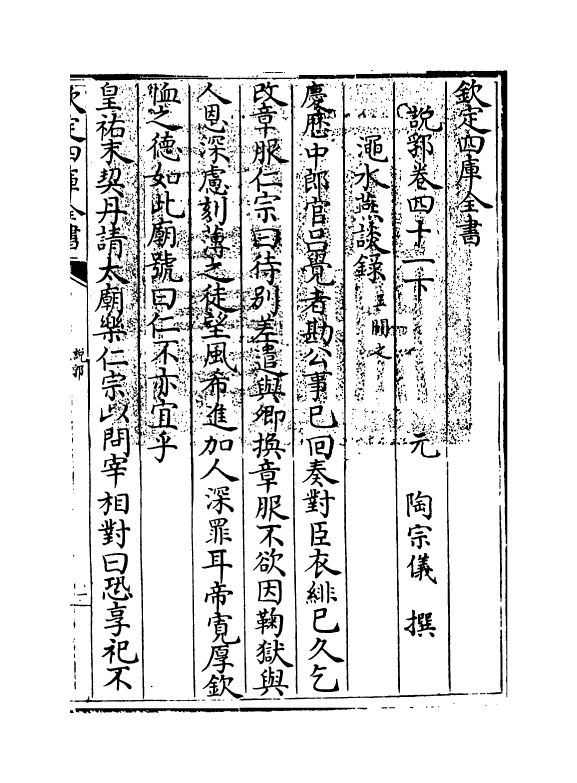 欽定四庫全書
說郛卷四十一下
元 陶宗儀 撰
澠水燕談録 王闢之
慶厯中郎官吕覺者勘公事已回奏對臣衣緋已久乞
改章服仁宗曰待别差遣與卿換章服不欲因鞠獄與
人恩深慮刻薄之徒望風希進加人深罪耳帝寛厚欽
恤之德如此廟號曰仁不亦宜乎
皇祐末契丹請太廟樂仁宗以問宰相對曰恐享祀不
欽定四庫全書
說郛